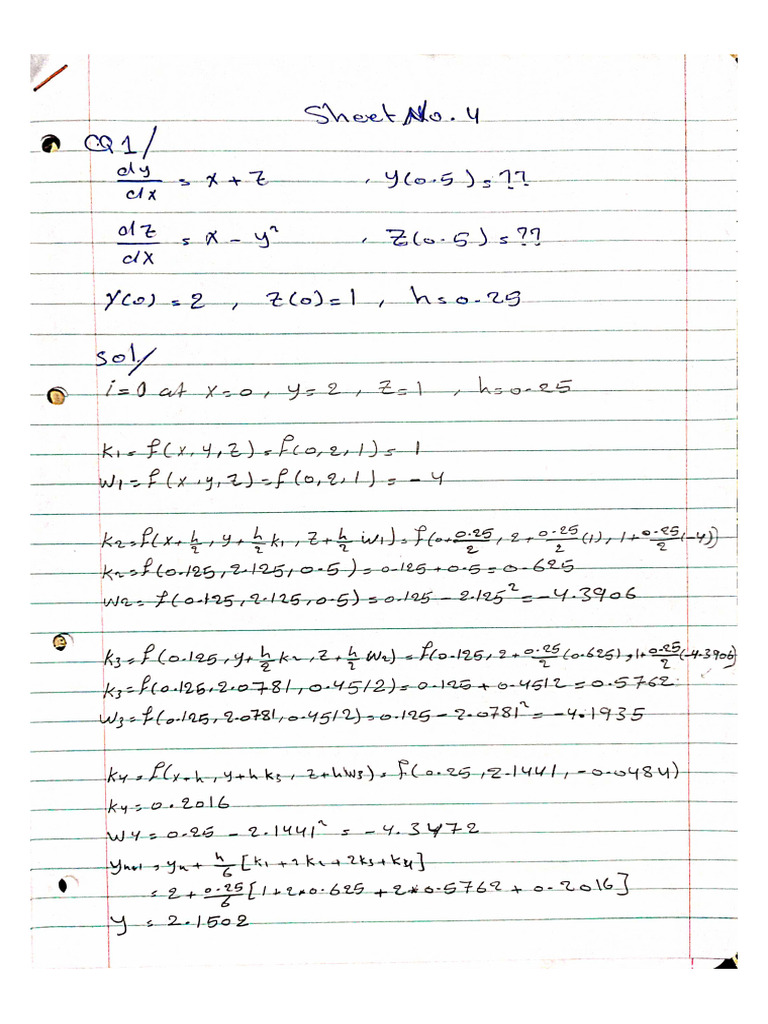 Sheet No. 4
CQ1/
dy/dx = x + z , y(0.5) = ??
dz/dx = x - y² , z(0.5) = ??
y(0) = 2 , z(0) = 1 , h = 0.25
Sol/
i=0 at x=0, y=2, z=1 , h=0.25
k1 = f(x,y,z) = f(0,2,1) = 1
w1 = f(x,y,z) = f(0,2,1) = -4
k2 = f(x+h/2, y+h/2 k1, z+h/2 w1) = f(0+0.25/2, 2+0.25/2(1), 1+0.25/2(-4))
k2 = f(0.125, 2.125, 0.5) = 0.125 + 0.5 = 0.625
w2 = f(0.125, 2.125, 0.5) = 0.125 - 2.125² = -4.3906
k3 = f(0.125, y+h/2 k2, z+h/2 w2) = f(0.125, 2+0.25/2(0.625), 1+0.25/2(-4.3906)
k3 = f(0.125, 2.0781, 0.4512) = 0.125 + 0.4512 = 0.5762
w3 = f(0.125, 2.0781, 0.4512) = 0.125 - 2.0781² = -4.1935
k4 = f(x+h, y+hk3, z+hw3) = f(0.25, 2.1441, -0.0484)
k4 = 0.2016
w4 = 0.25 - 2.1441² = -4.3472
yn+1 = yn + h/6 [k1 + 2k2 + 2k3 + k4]
= 2 + 0.25/6 [1 + 2*0.625 + 2*0.5762 + 0.2016]
y = 2.1502